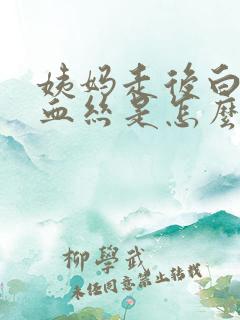 姨妈走后白
血丝是怎麽
柳學武
未经同意禁止转载